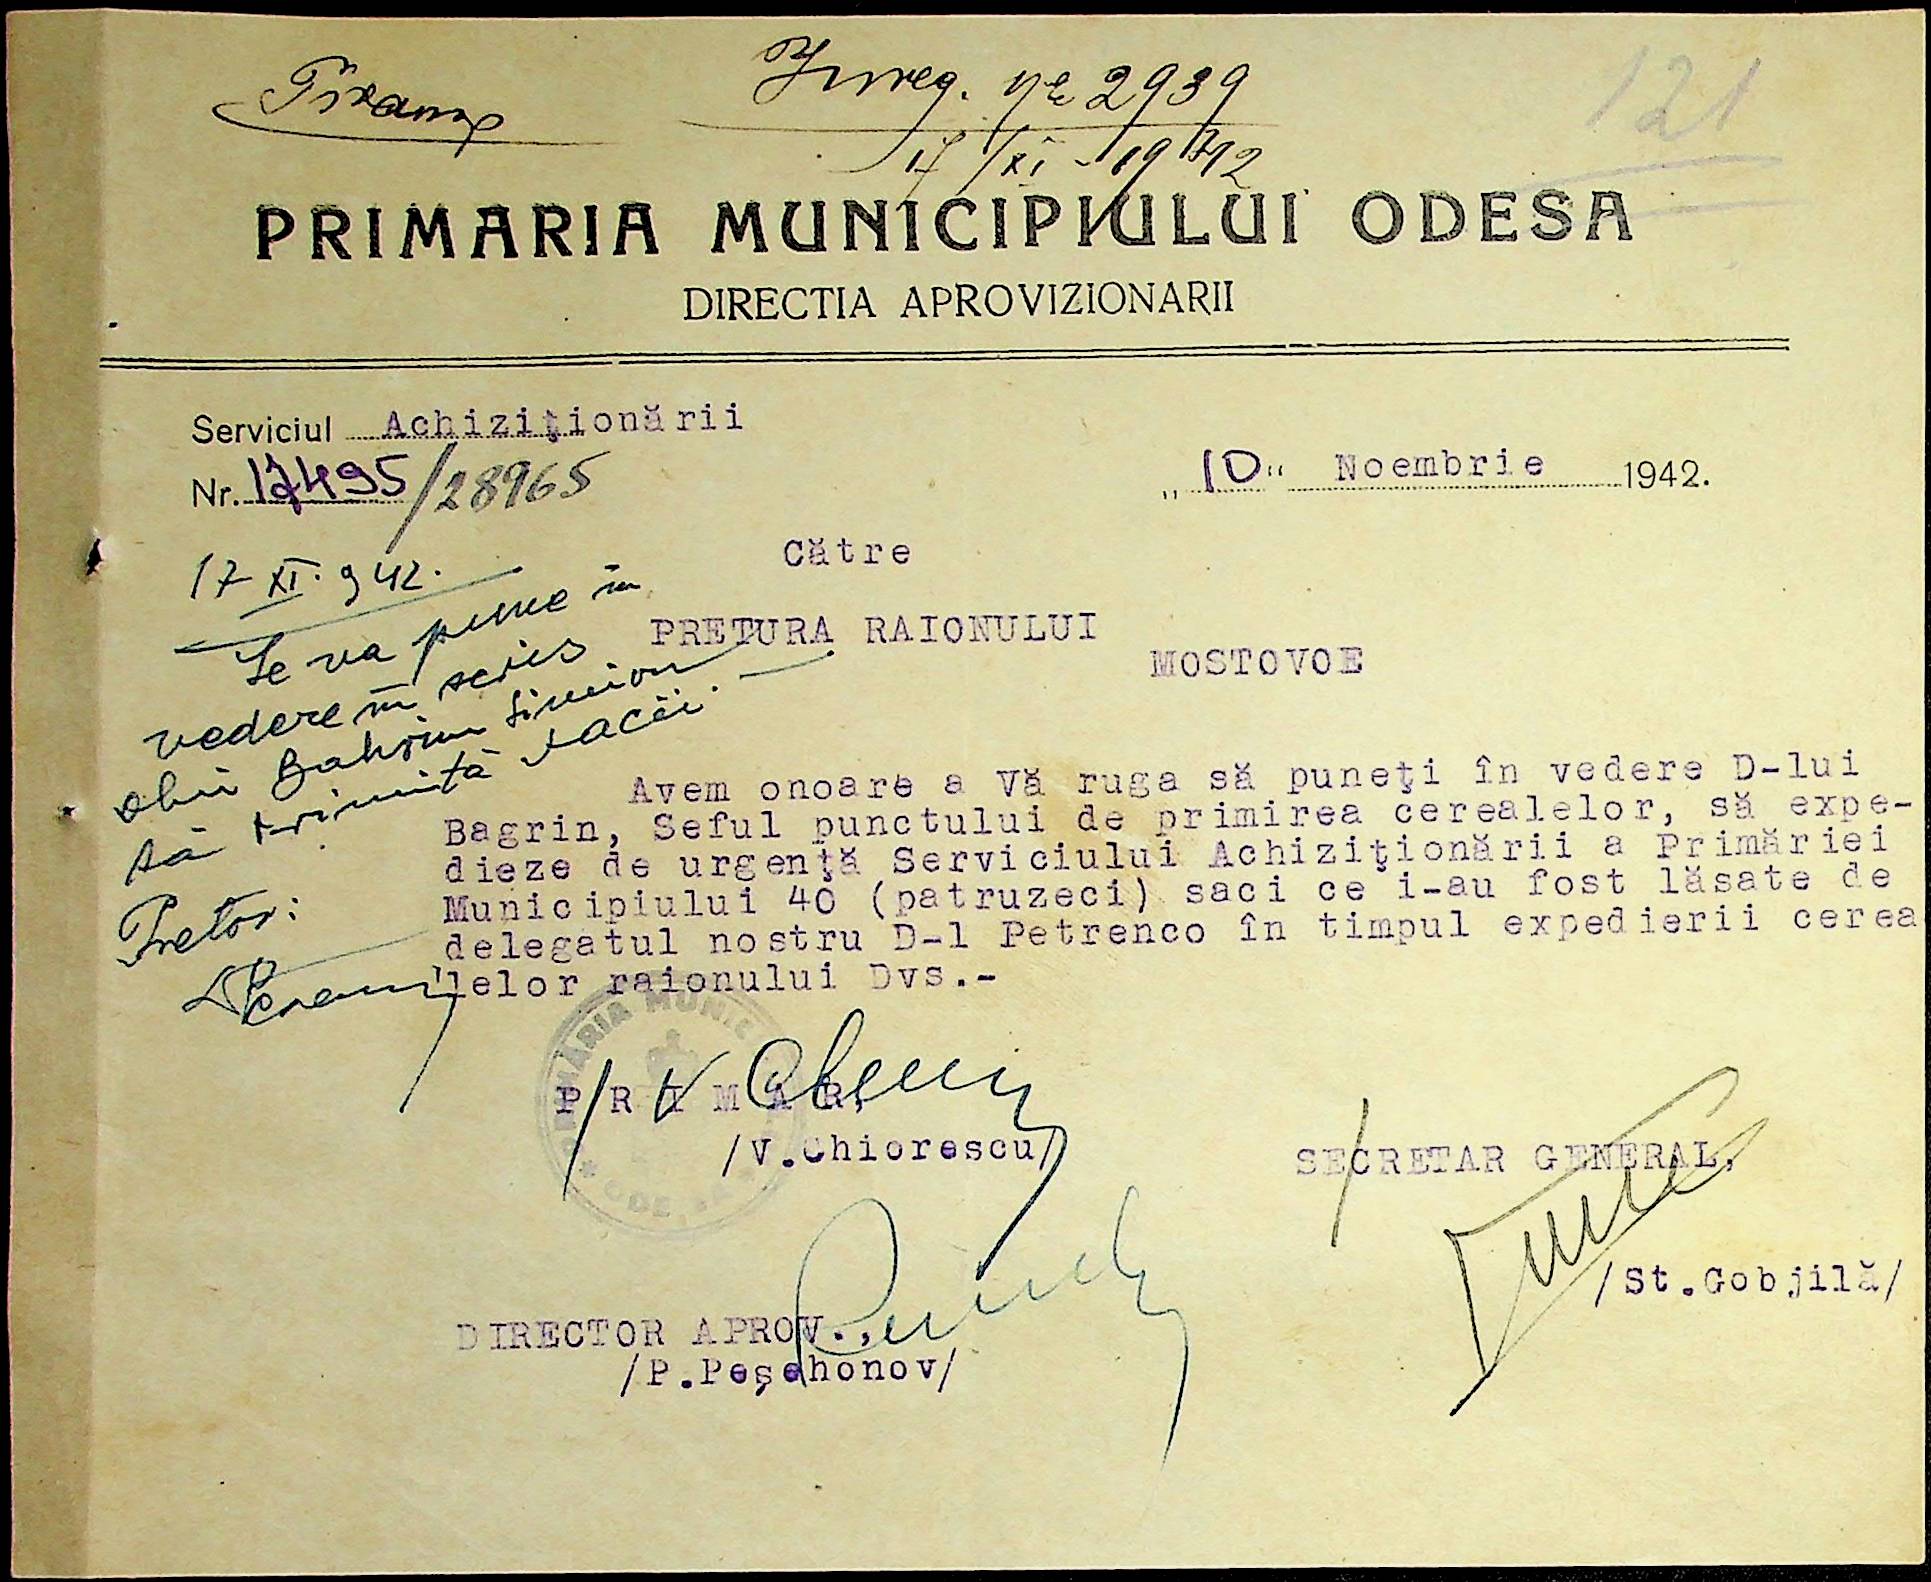 Inreg. № 2939
17/XI - 1942
121
PRIMARIA MUNICIPIULUI ODESA
DIRECTIA APROVIZIONARII
Serviciul Achiziţionării
Nr. 17495/28965
„10“ Noembrie 1942.
17 XI. 942.
Se va pune în
vedere în scris
dlui Bahrin Simion
să trimită sacii.
Pretor:
Către
PRETURA RAIONULUI
MOSTOVOE
Avem onoare a Vă ruga să puneţi în vedere D-lui
Bagrin, Seful punctului de primirea cerealelor, să expe-
dieze de urgenţă Serviciului Achiziţionării a Primăriei
Municipiului 40 (patruzeci) saci ce i-au fost lăsate de
delegatul nostru D-l Petrenco în timpul expedierii cerea
lelor raionului Dvs.-
PRIMAR,
/V.Chiorescu/
SECRETAR GENERAL,
/St.Gobjilă/
DIRECTOR APROV.,
/P.Peşehonov/